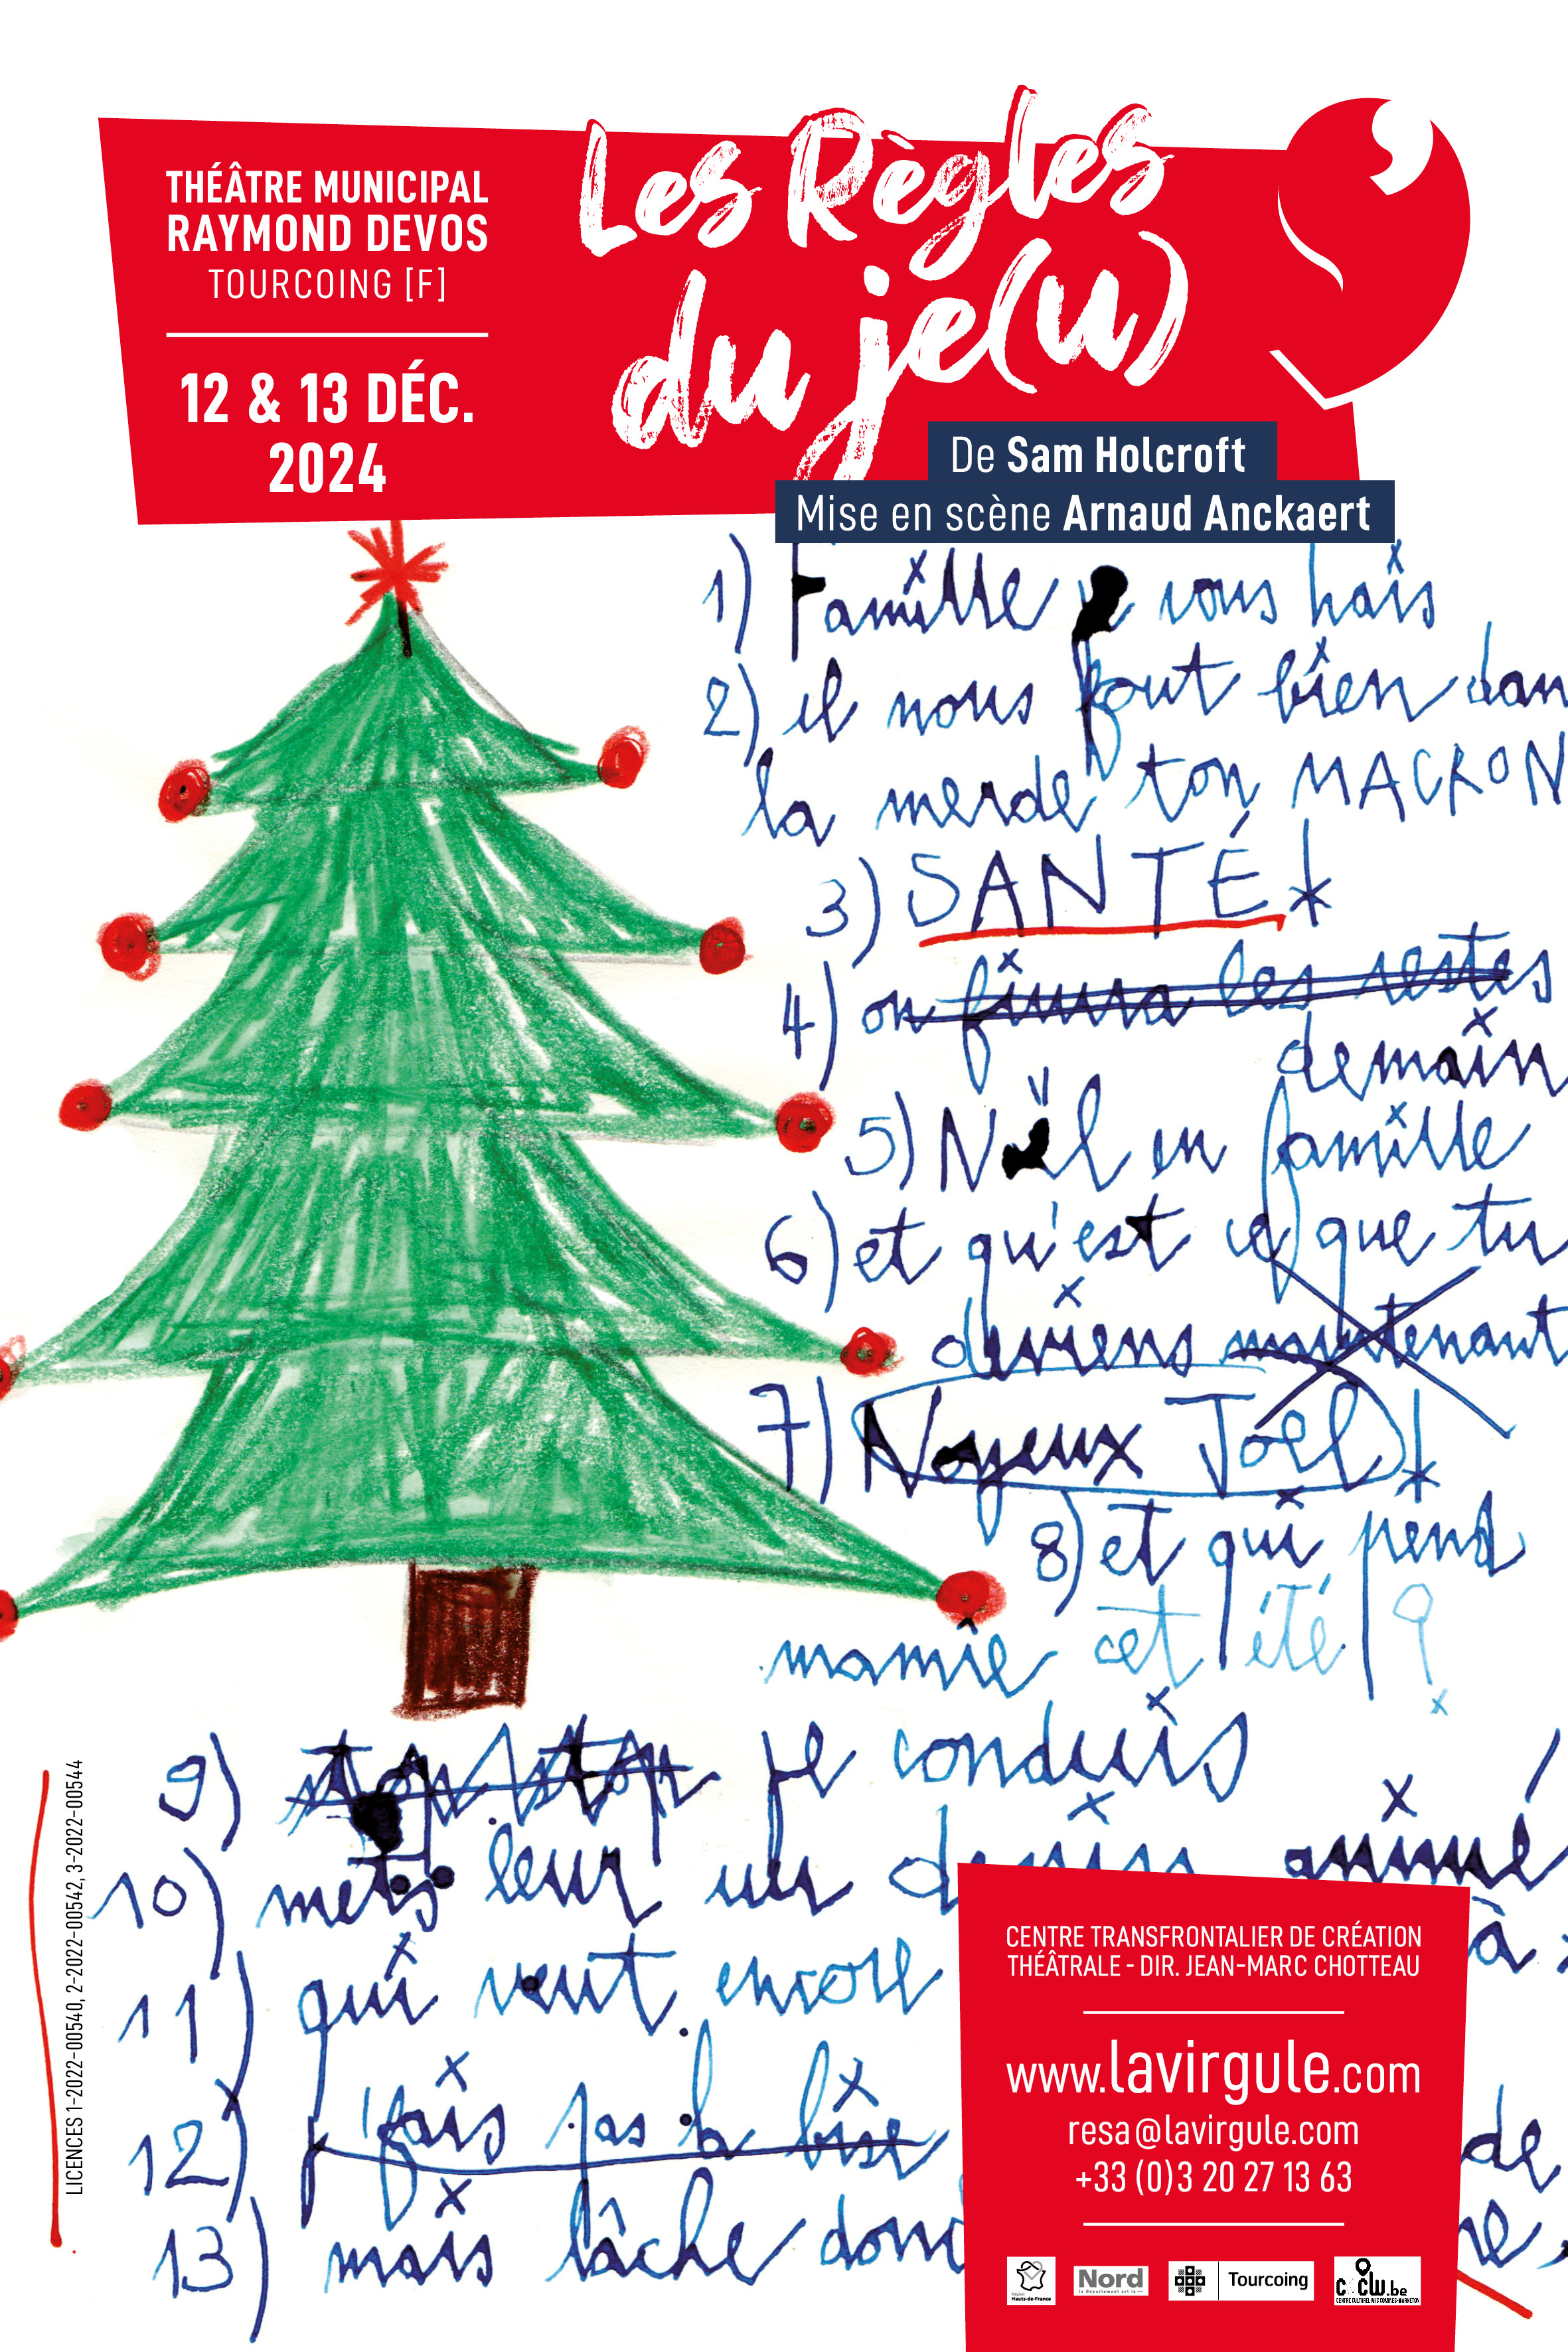 THÉÂTRE MUNICIPAL
RAYMOND DEVOS
TOURCOING [F]
12 & 13 DÉC.
2024
Les Règles
du je(u)
De Sam Holcroft
Mise en scène Arnaud Anckaert
1) Famille je vous hais
2) il nous fout bien dan
la merde ton MACRON
3) SANTÉ!
4) on finira les restes
demain
5) Noël en famille
6) et qu'est ce que tu
deviens maintenant
7) Noyeux Joël!
8) et qui prend
mamie cet été ?
9) stop stop je conduis
10) mets leur un dessin animé
11) qui veut encore
à
12) j'fais pas la bise
de
13) mais lâche donc
LICENCES 1-2022-00540, 2-2022-00542, 3-2022-00544
CENTRE TRANSFRONTALIER DE CRÉATION
THÉÂTRALE - DIR. JEAN-MARC CHOTTEAU
www.lavirgule.com
resa@lavirgule.com
+33 (0)3 20 27 13 63
Région
Hauts-de-France
Nord
le Département est là
Tourcoing
CCCW.be